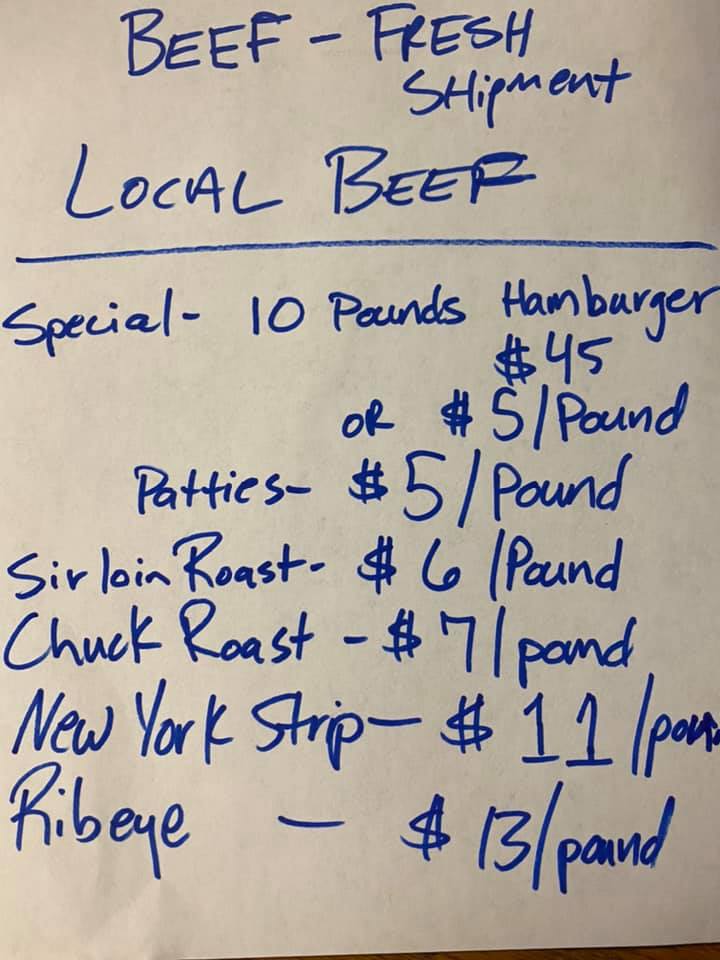 BEEF - FRESH
SHipment
LOCAL BEEF
Special- 10 Pounds Hamburger
$45
OR $5/Pound
Patties- $5/Pound
Sirloin Roast- $6/Pound
Chuck Roast - $7/pound
New York Strip- $11/poun
Ribeye - $13/pound